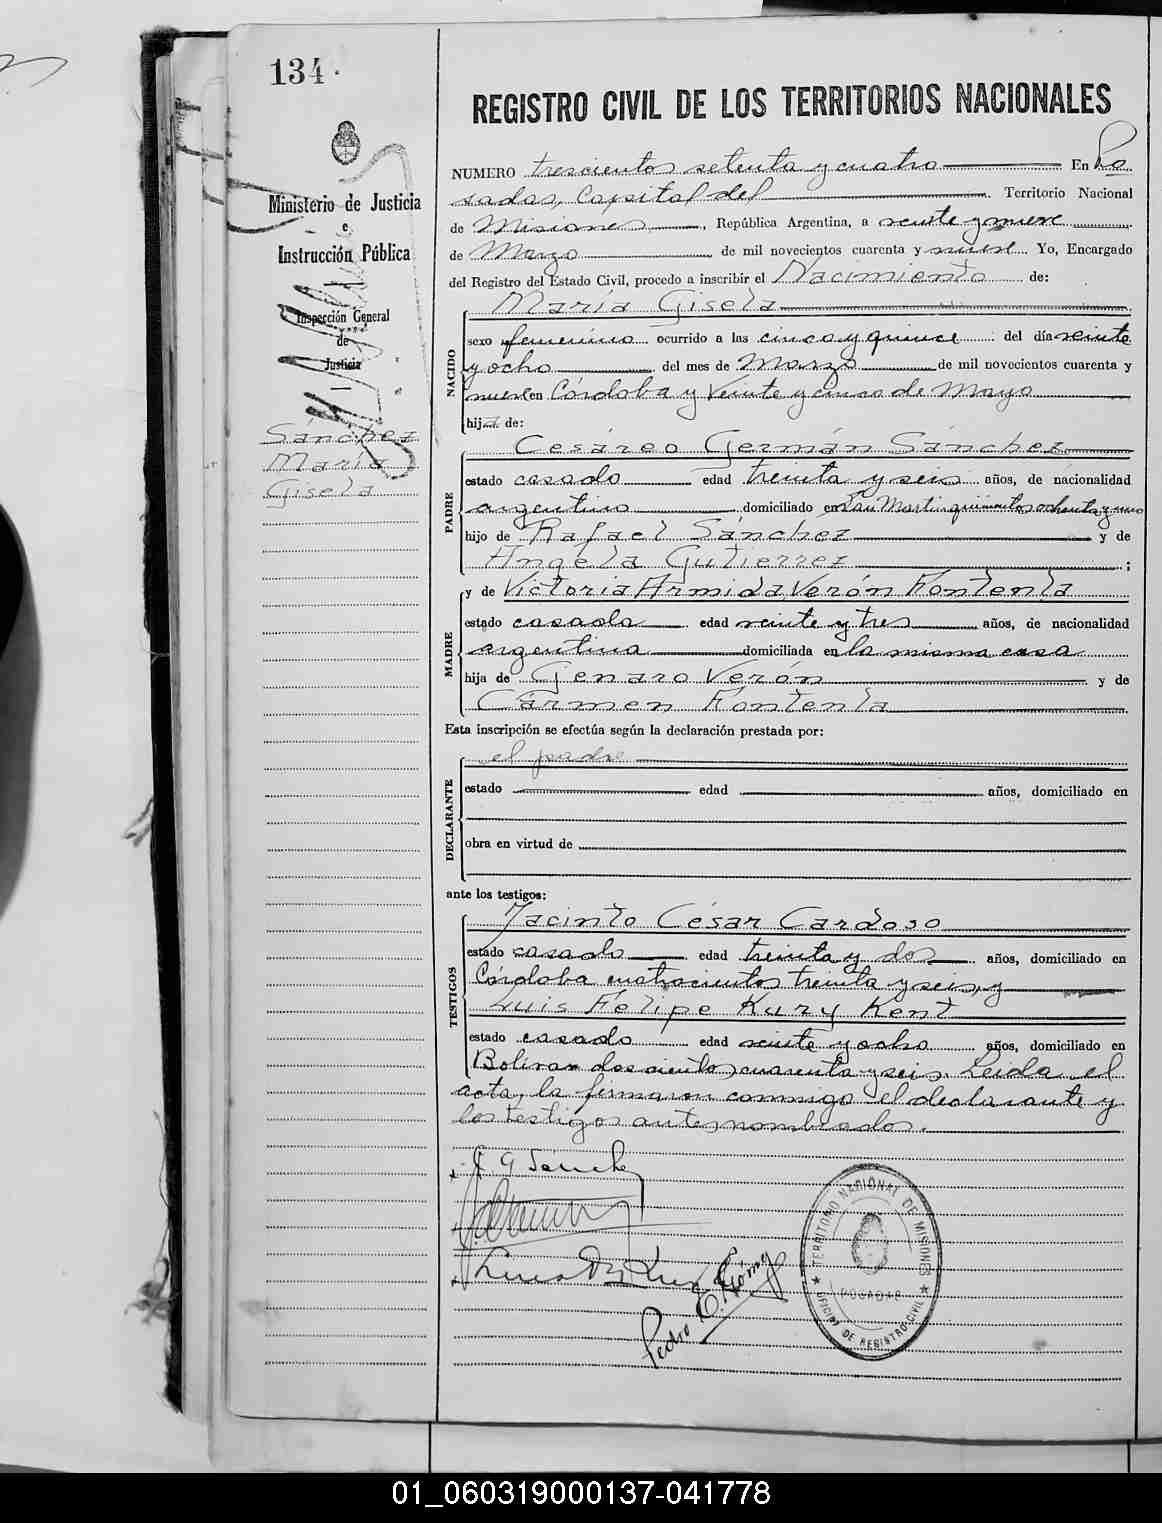 134.
Ministerio de Justicia
e
Instrucción Pública
Inspección General
de
Justicia
Sánchez
María
Gisela
REGISTRO CIVIL DE LOS TERRITORIOS NACIONALES
NUMERO trescientos setenta y cuatro En Po
sadas, Capital del Territorio Nacional
de Misiones, República Argentina, a veinte y nueve
de Marzo de mil novecientos cuarenta y nueve Yo, Encargado
del Registro del Estado Civil, procedo a inscribir el Nacimiento de:
María Gisela
NACIDO
sexo femenino ocurrido a las cinco y quince del día veinte
y ocho del mes de Marzo de mil novecientos cuarenta y
nueve en Córdoba y Veinte y cinco de Mayo
hija de:
Cesáreo Germán Sánchez
PADRE
estado casado edad treinta y seis años, de nacionalidad
argentino domiciliado en San Martin quinientos ochenta y uno
hijo de Rafael Sánchez y de
Angela Gutierrez;
y de Victoria Armida Verón Fontenla
MADRE
estado casada edad veinte y tres años, de nacionalidad
argentina domiciliada en la misma casa
hija de Genaro Verón y de
Cármen Fontenla
Esta inscripción se efectúa según la declaración prestada por:
el padre
DECLARANTE
estado edad años, domiciliado en
obra en virtud de
ante los testigos:
Jacinto César Cardoso
TESTIGOS
estado casado edad treinta y dos años, domiciliado en
Córdoba cuatrocientos treinta y seis, y
Luis Felipe Kury Kent
estado casado edad veinte y ocho años, domiciliado en
Bolívar doscientos cuarenta y seis. Leída el
acta, la firmaron conmigo el declarante y
los testigos antes nombrados.
G Sánchez
Pedro E. Gómez
TERRITORIO NACIONAL DE MISIONES
POSADAS
OFICINA DE REGISTRO CIVIL
01_060319000137-041778